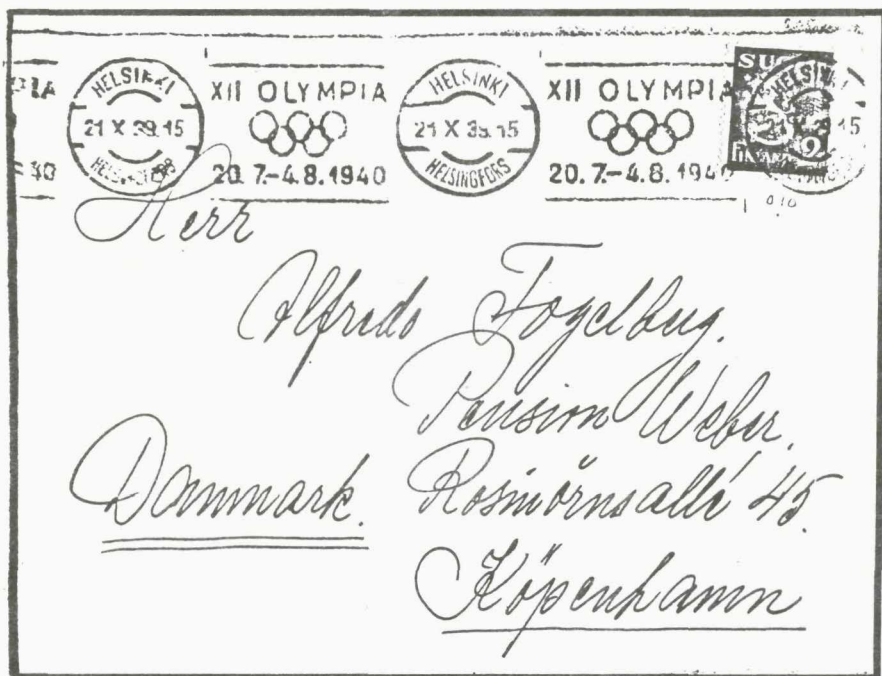 HELSINKI
21 X 39.15
HELSINGFORS
XII OLYMPIA
20.7.-4.8.1940
HELSINKI
21 X 39.15
HELSINGFORS
XII OLYMPIA
20.7.-4.8.1940
HELSINKI
Herr
Alfredo Fogelberg.
Pension Weber.
Danmark. Rosinörnsallé 45.
Köpenhamn